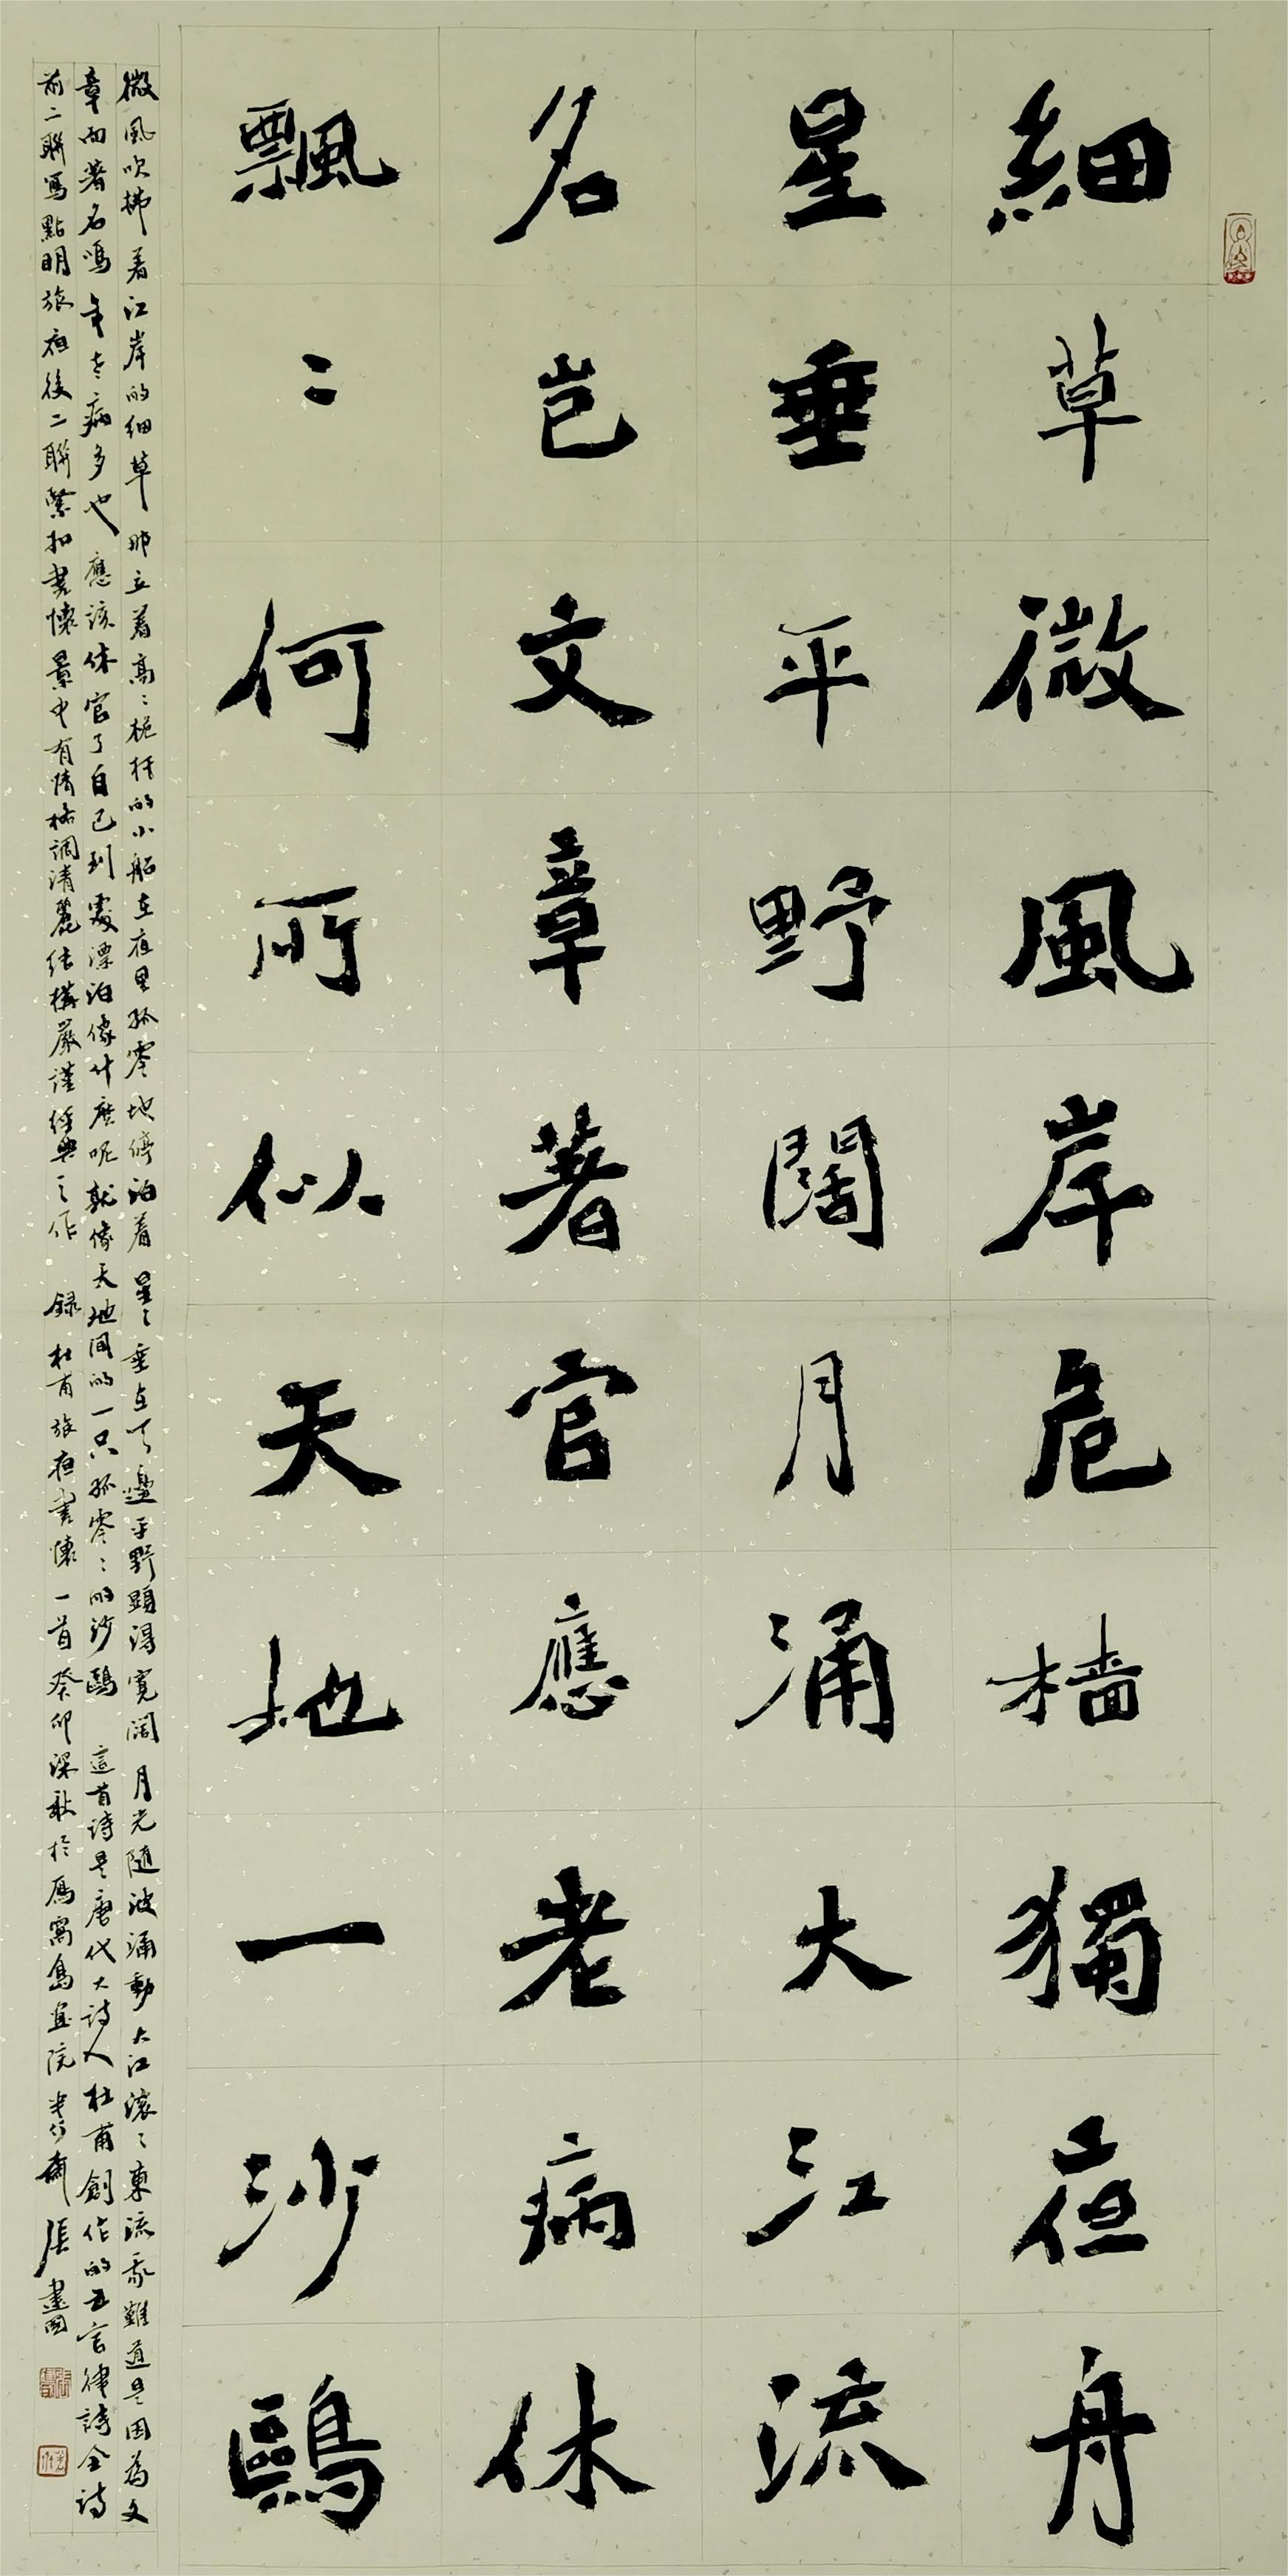 細草微風岸危檣獨夜舟
星垂平野闊月涌大江流
名豈文章著官應老病休
飄〻何所似天地一沙鷗
微風吹拂着江岸的細草那立着高〻桅杆的小船在夜里孤零地停泊着星〻垂在天邊平野顯得寬闊月光隨波涌動大江滾〻東流我難道是因為文
章而著名嗎年老病多也應該休官了自己到處漂泊像什麽呢就像天地間的一只孤零〻的沙鷗這首詩是唐代大詩人杜甫創作的五言律詩全詩
前二聯寫點明旅夜後二聯緊扣書懷景中有情格調清麗結構嚴謹經典之作錄杜甫旅夜書懷一首癸卯深秋於雁窩島畫院張建國